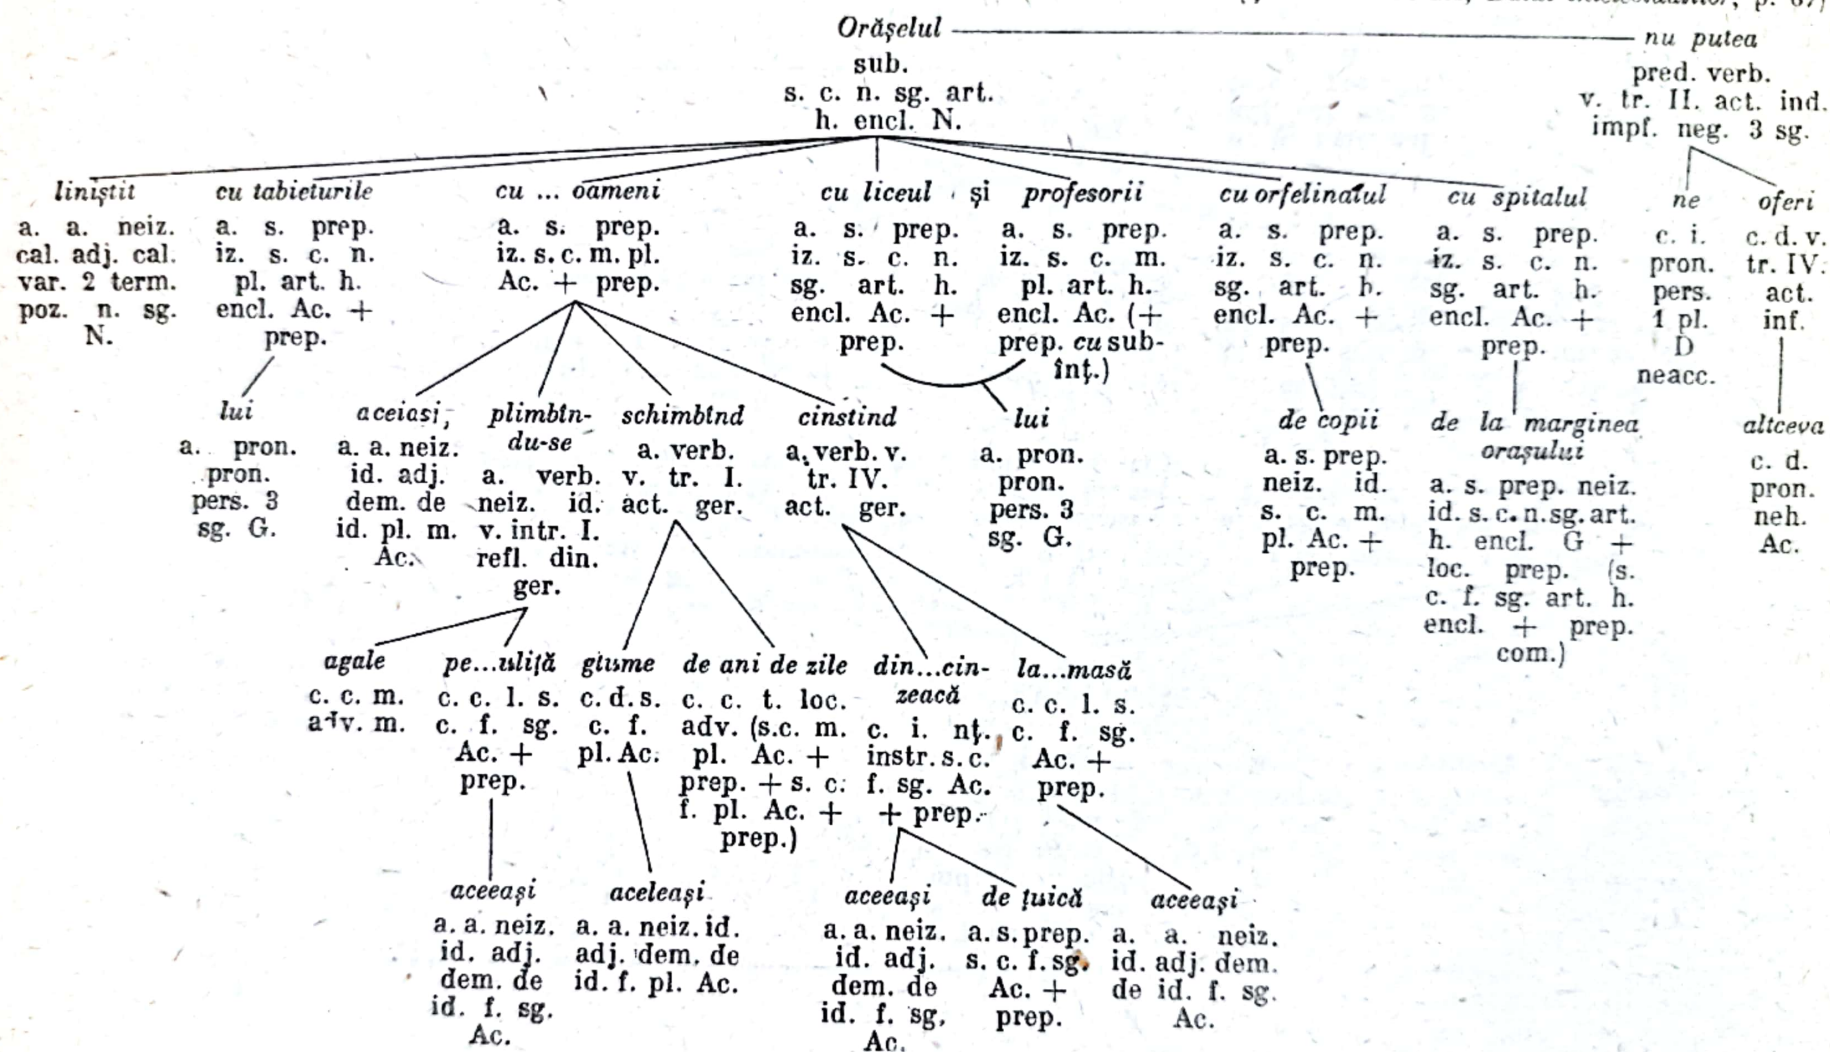 Orășelul
sub.
s. c. n. sg. art.
h. encl. N.
nu putea
pred. verb.
v. tr. II. act. ind.
impf. neg. 3 sg.
liniștit
a. a. neiz.
cal. adj. cal.
var. 2 term.
poz. n. sg.
N.
cu tabieturile
a. s. prep.
iz. s. c. n.
pl. art. h.
encl. Ac. +
prep.
cu ... oameni
a. s. prep.
iz. s. c. m. pl.
Ac. + prep.
cu liceul și profesorii
a. s. prep.
iz. s. c. n.
sg. art. h.
encl. Ac. +
prep.
a. s. prep.
iz. s. c. m.
pl. art. h.
encl. Ac. (+
prep. cu sub-
înț.)
cu orfelinatul
a. s. prep.
iz. s. c. n.
sg. art. h.
encl. Ac. +
prep.
cu spitalul
a. s. prep.
iz. s. c. n.
sg. art. h.
encl. Ac. +
prep.
ne
c. i.
pron.
pers.
1 pl.
D
neacc.
oferi
c. d. v.
tr. IV.
act.
inf.
lui
a. pron.
pron.
pers. 3
sg. G.
aceiași,
a. a. neiz.
id. adj.
dem. de
id. pl. m.
Ac.
plimbîn-
du-se
a. verb.
neiz. id.
v. intr. I.
refl. din.
ger.
schimbînd
a. verb.
v. tr. I.
act. ger.
cinstind
a. verb. v.
tr. IV.
act. ger.
lui
a. pron.
pron.
pers. 3
sg. G.
de copii
a. s. prep.
neiz. id.
s. c. m.
pl. Ac. +
prep.
de la marginea
orașului
a. s. prep. neiz.
id. s. c. n. sg. art.
h. encl. G +
loc. prep. (s.
c. f. sg. art. h.
encl. + prep.
com.)
altceva
c. d.
pron.
neh.
Ac.
agale
c. c. m.
adv. m.
pe...uliță
c. c. l. s.
c. f. sg.
Ac. +
prep.
glume
c. d. s.
c. f.
pl. Ac.
de ani de zile
c. c. t. loc.
adv. (s.c. m.
pl. Ac. +
prep. + s. c.
f. pl. Ac. +
prep.)
din...cin-
zeacă
c. i. nț.
instr. s. c.
f. sg. Ac.
+ prep.
la...masă
c. c. l. s.
c. f. sg.
Ac. +
prep.
aceeași
a. a. neiz.
id. adj.
dem. de
id. f. sg.
Ac.
aceleași
a. a. neiz. id.
adj. dem. de
id. f. pl. Ac.
aceeași
a. a. neiz.
id. adj.
dem. de
id. f. sg.
Ac.
de țuică
a. s. prep.
s. c. f. sg.
Ac. +
prep.
aceeași
a. a. neiz.
id. adj. dem.
de id. f. sg.
Ac.